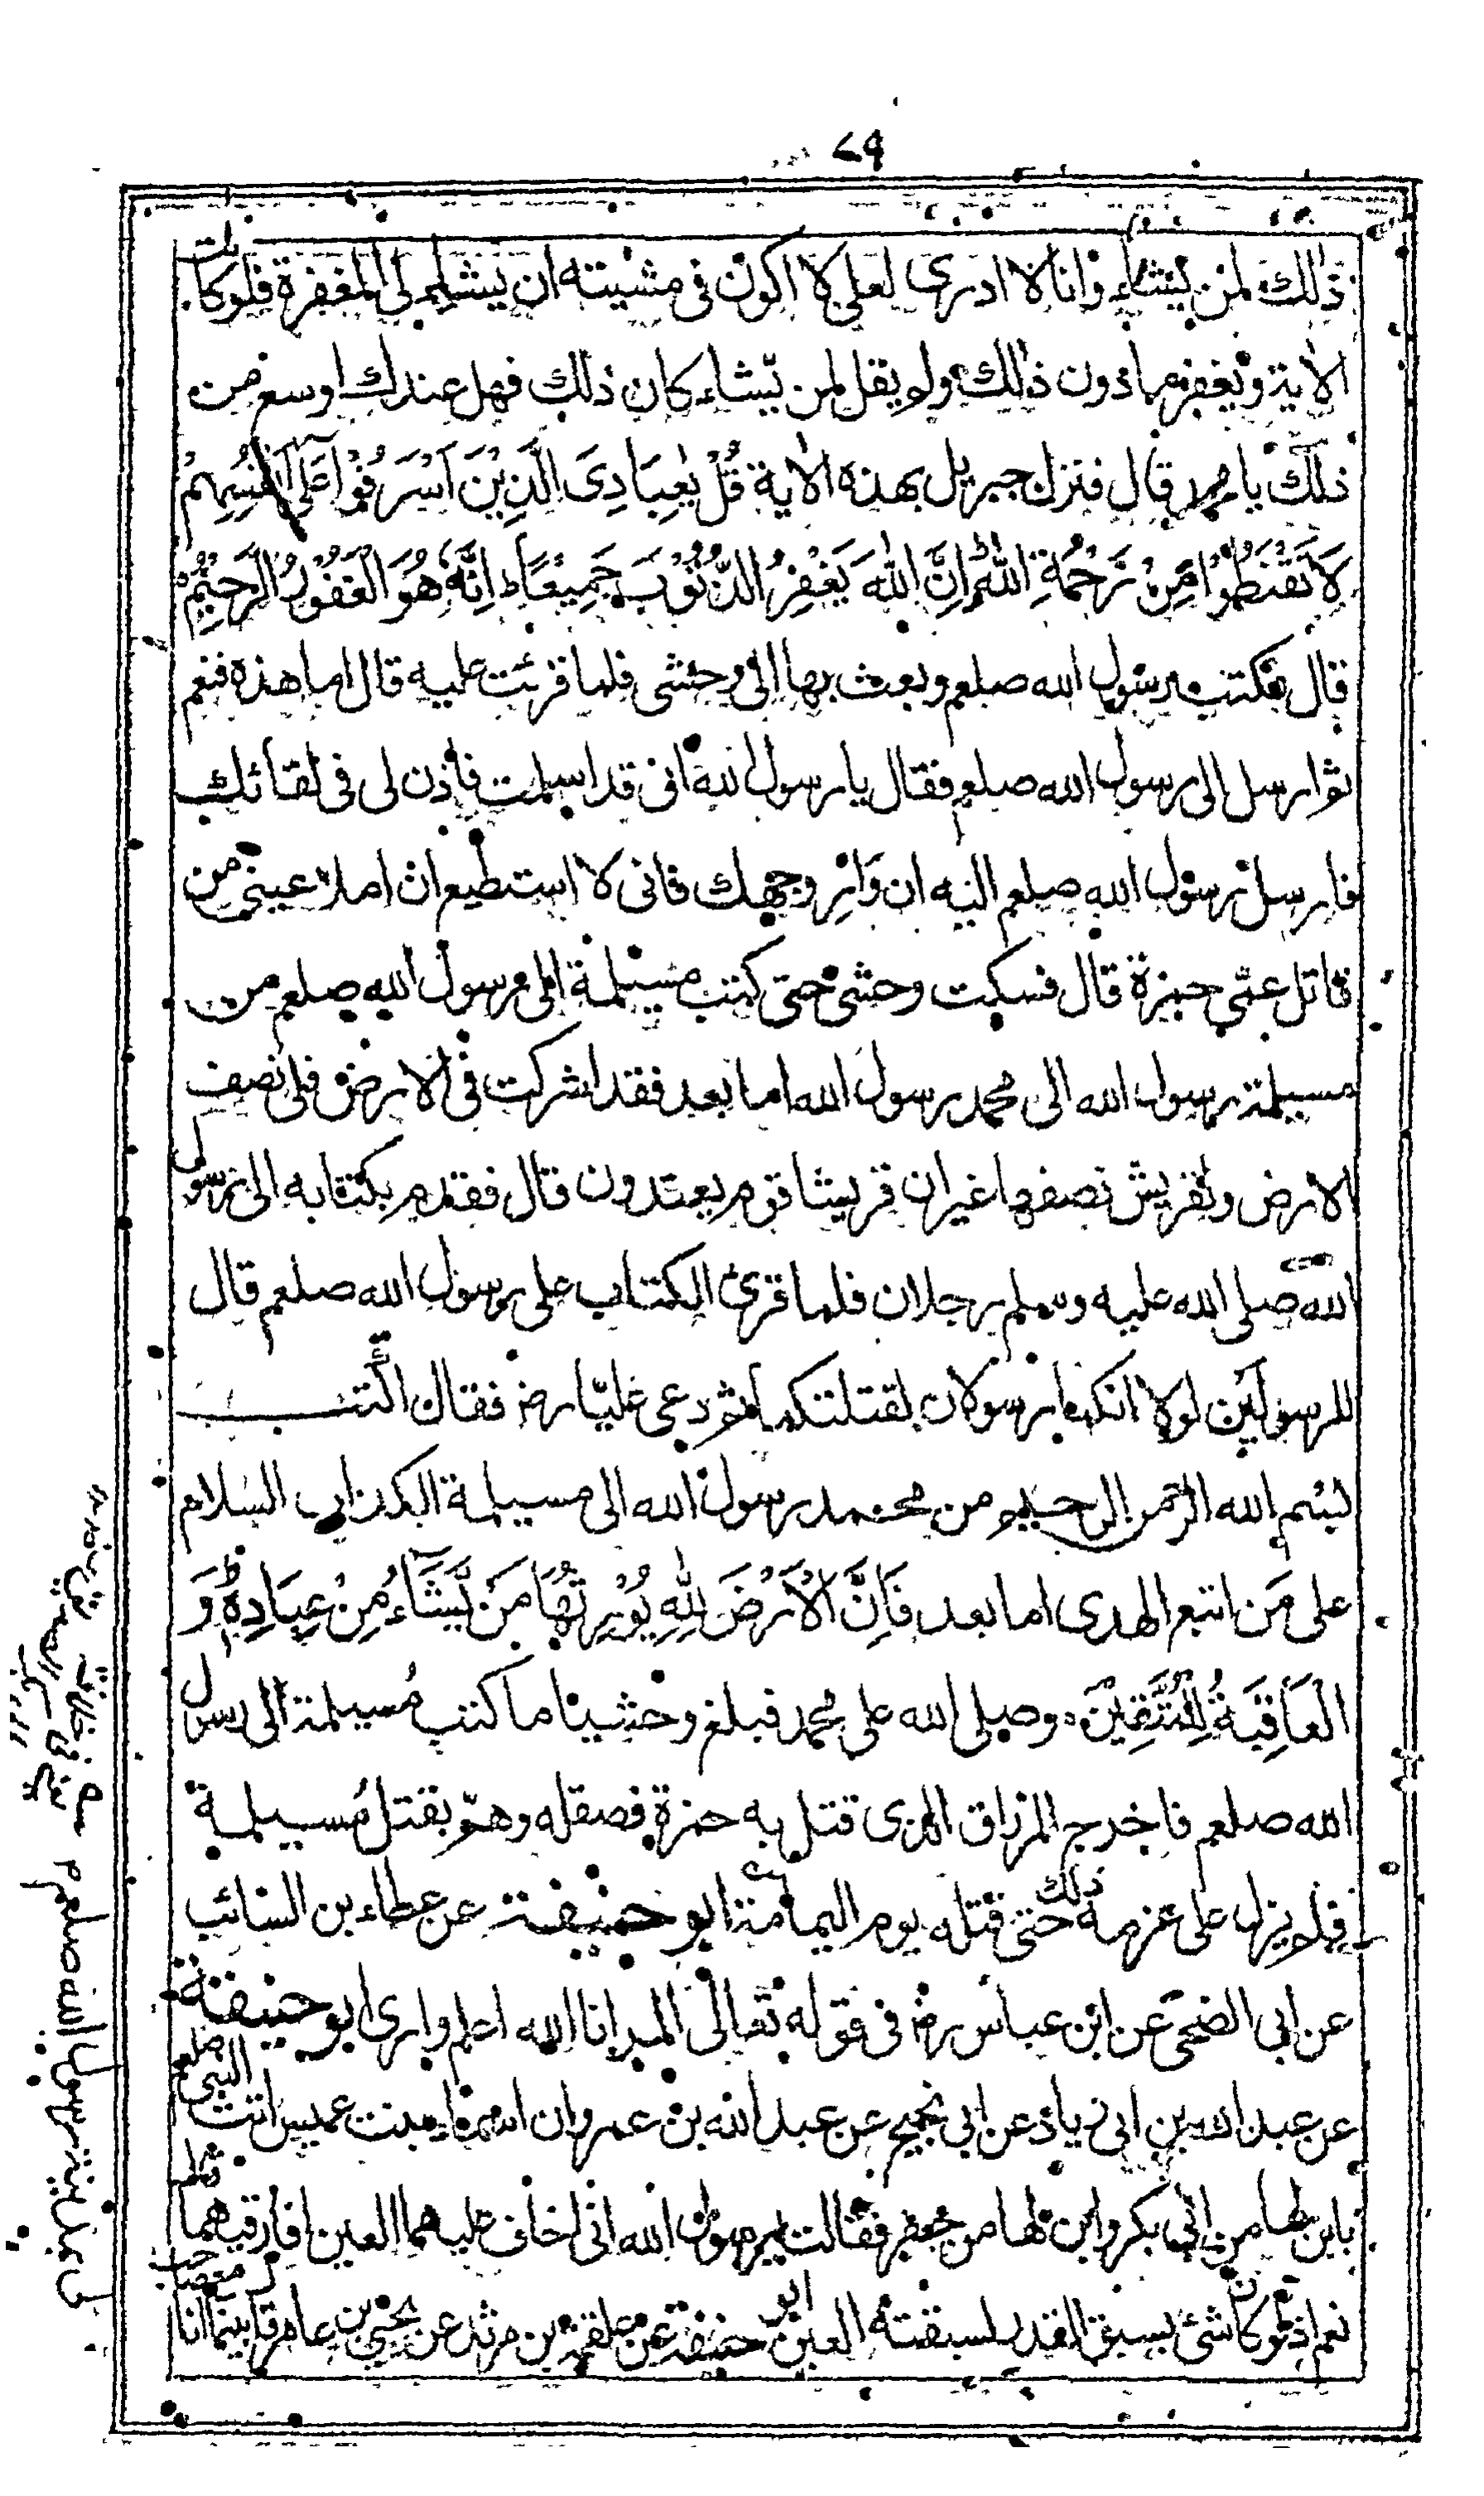 ٧٩
ذلك لمن يشاء وانا لا ادرى لعلى لا اكون فى مشيته ان يشاء لى المغفرة فلو كانت
الاية ويغفر ما دون ذلك ولم يقل لمن يشاء كان ذلك فهل عندك اوسع من
ذلك يا محمد قال فنزل جبريل بهذه الاية قُلْ يٰعِبَادِىَ الَّذِيْنَ اَسْرَفُوْا عَلٰى اَنْفُسِهِمْ
لَا تَقْنَطُوْا مِنْ رَّحْمَةِ اللّٰهِ اِنَّ اللّٰهَ يَغْفِرُ الذُّنُوْبَ جَمِيْعًا ط اِنَّهٗ هُوَ الْغَفُوْرُ الرَّحِيْمُ
قال فكتب رسول الله صلعم وبعث بها الى وحشى فلما قرئت عليه قال اما هذه فنعم
ثم ارسل الى رسول الله صلعم فقال يا رسول الله انى قد اسلمت فاذن لى فى لقائك
فارسل رسول الله صلعم اليه ان وَارِ وجهك فانى لا استطيع ان املأ عينى من
قاتل عمّى حمزة قال فسكت وحشى حتى كتب مسيلمة الى رسول الله صلعم من
مسيلمة رسول الله الى محمد رسول الله اما بعد فقد اشركت فى الارض فلى نصف
الارض ولقريش نصفها غير ان قريشا قوم يعتدون قال فقدم بكتابه الى رسول
الله صلى الله عليه وسلم رجلان فلما قرئ الكتاب على رسول الله صلعم قال
للرسولين لولا انكما رسولان لقتلتكما ثم دعى عليّا رض فقال اكتب
بسم الله الرحمن الرحيم من محمد رسول الله الى مسيلمة الكذاب السلام
على مَن اتبع الهدى اما بعد فَاِنَّ الْاَرْضَ لِلّٰهِ يُوْرِثُهَا مَنْ يَّشَآءُ مِنْ عِبَادِهٖ وَ
الْعَاقِبَةُ لِلْمُتَّقِيْنَ ه وصلى الله على محمد فبلغ وحشيا ما كتب مُسيلمة الى رسول
الله صلعم فاخرج المزراق الذى قتل به حمزة فصقله وهمّ بقتل مُسيلمة
فلم يزل على عزمه ذلك حتى قتله يوم اليمامة ابو حنيفة عن عطاء بن السائب
عن ابى الضحى عن ابن عباس رض فى قوله تعالى المر انا الله اعلم وارى ابو حنيفة
عن عبد الله بن ابى زياد عن ابى نجيح عن عبد الله بن عمر وان اسماء بنت عميس اتت النبى صلعم
بابن لها من ابى بكر وابن لها من جعفر فقالت يا رسول الله انى اخاف عليهما العين افارقيهما قال
نعم اذ لو كان شئ يسبق القدر لسبقته العين ابو حنيفة عن علقمة بن مرثد عن يحيى بن عامر قال بينما انا